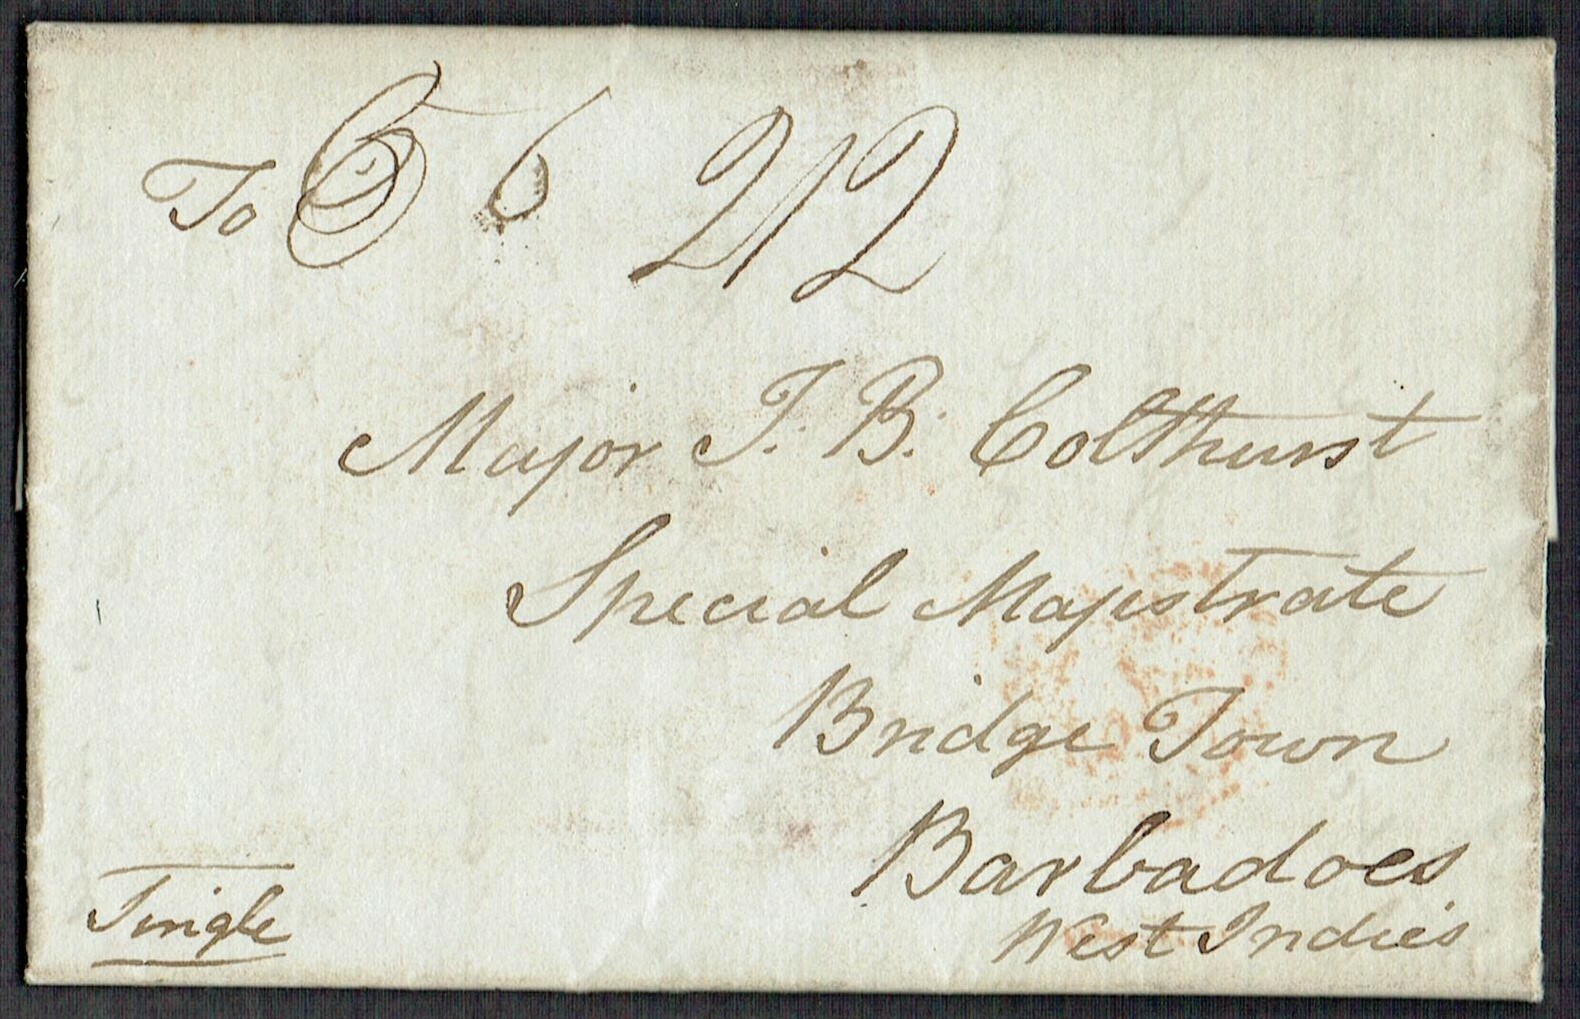 To 6 2/2
Major J. B. Colthurst
Special Magistrate
Bridge Town
Barbadoes
West Indies
Single